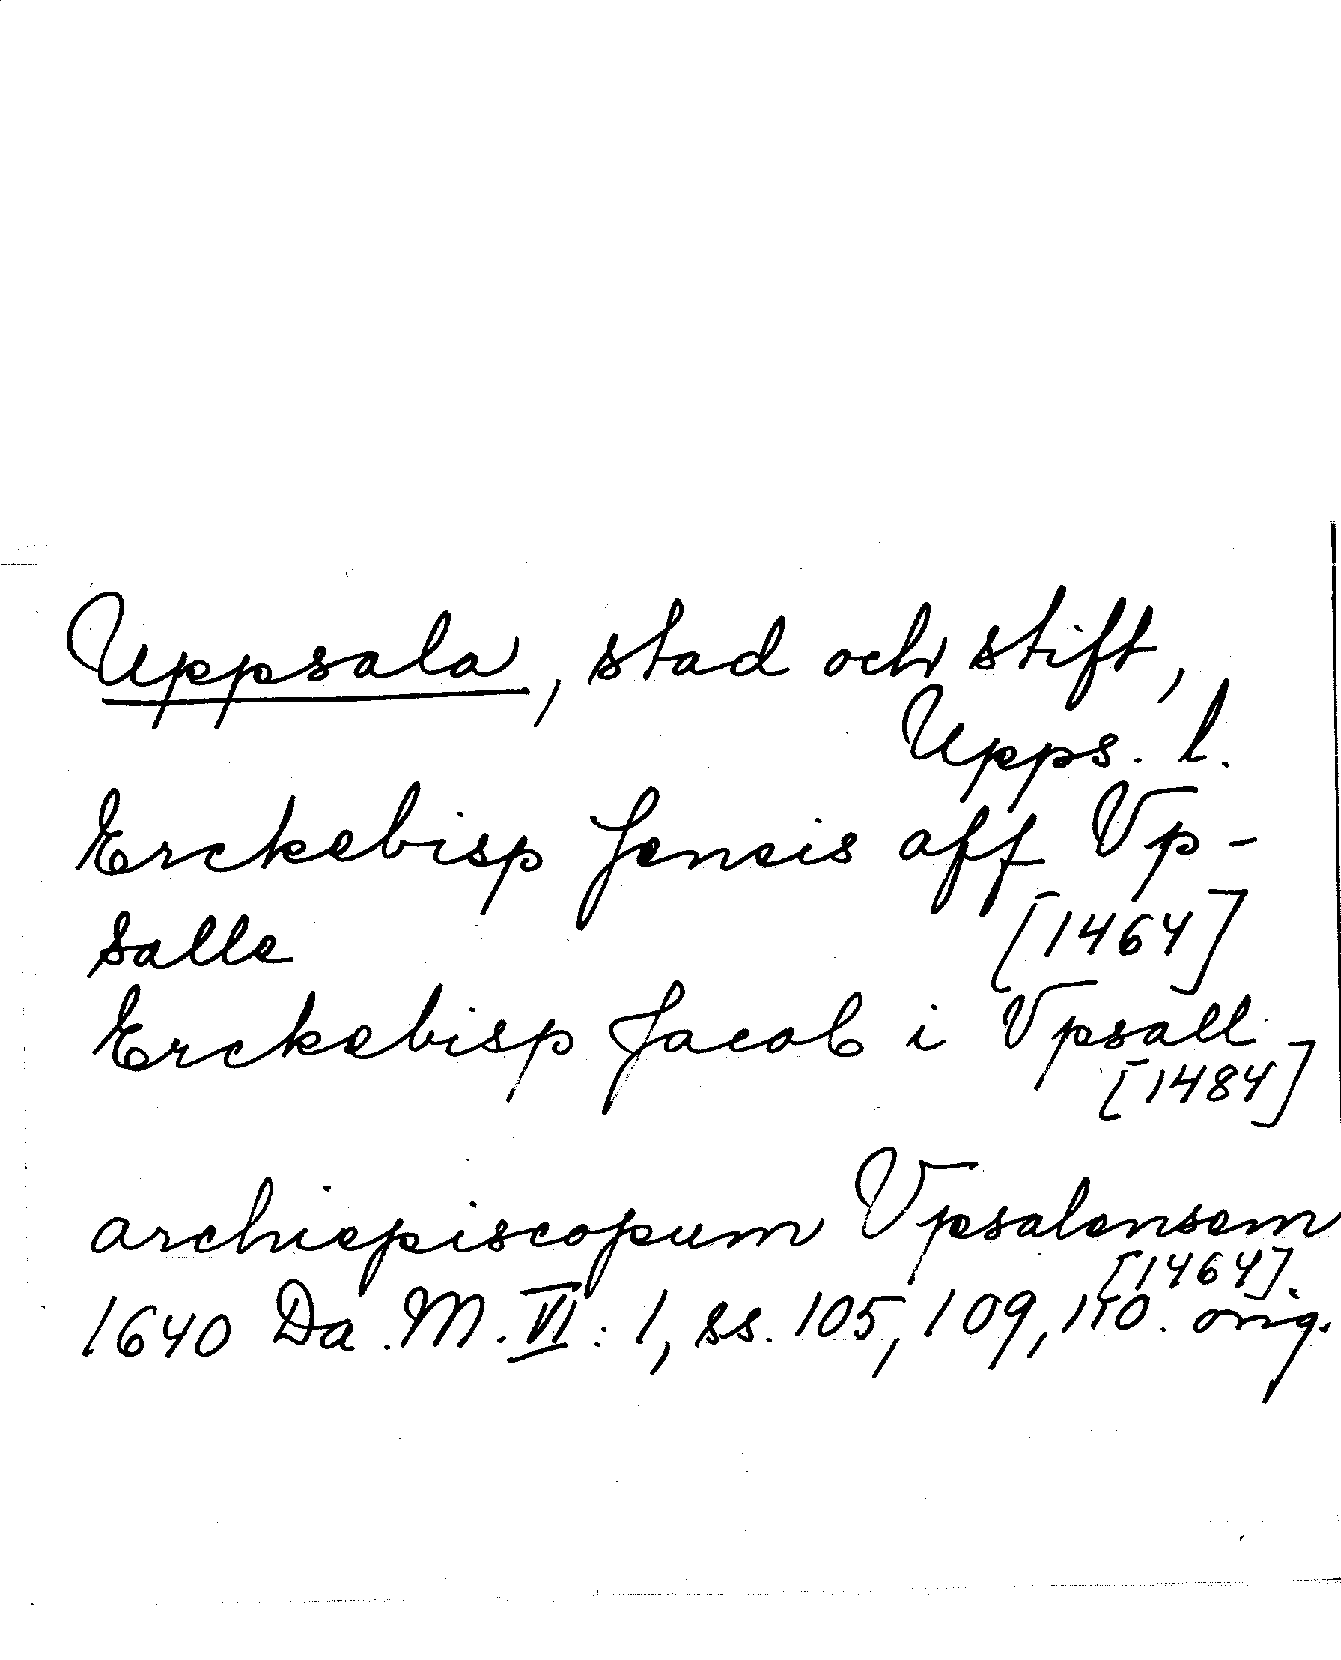 Uppsala, stad och stift,
Upps. l.
Erckebisp Jeneis aff Vp-
salle [1464]
Erckebisp Jacob i Vpsall
[1484]
archiepiscopum Vpsalensem
[1464]
1640 Da. M. VI: 1, ss. 105, 109, 110. orig.